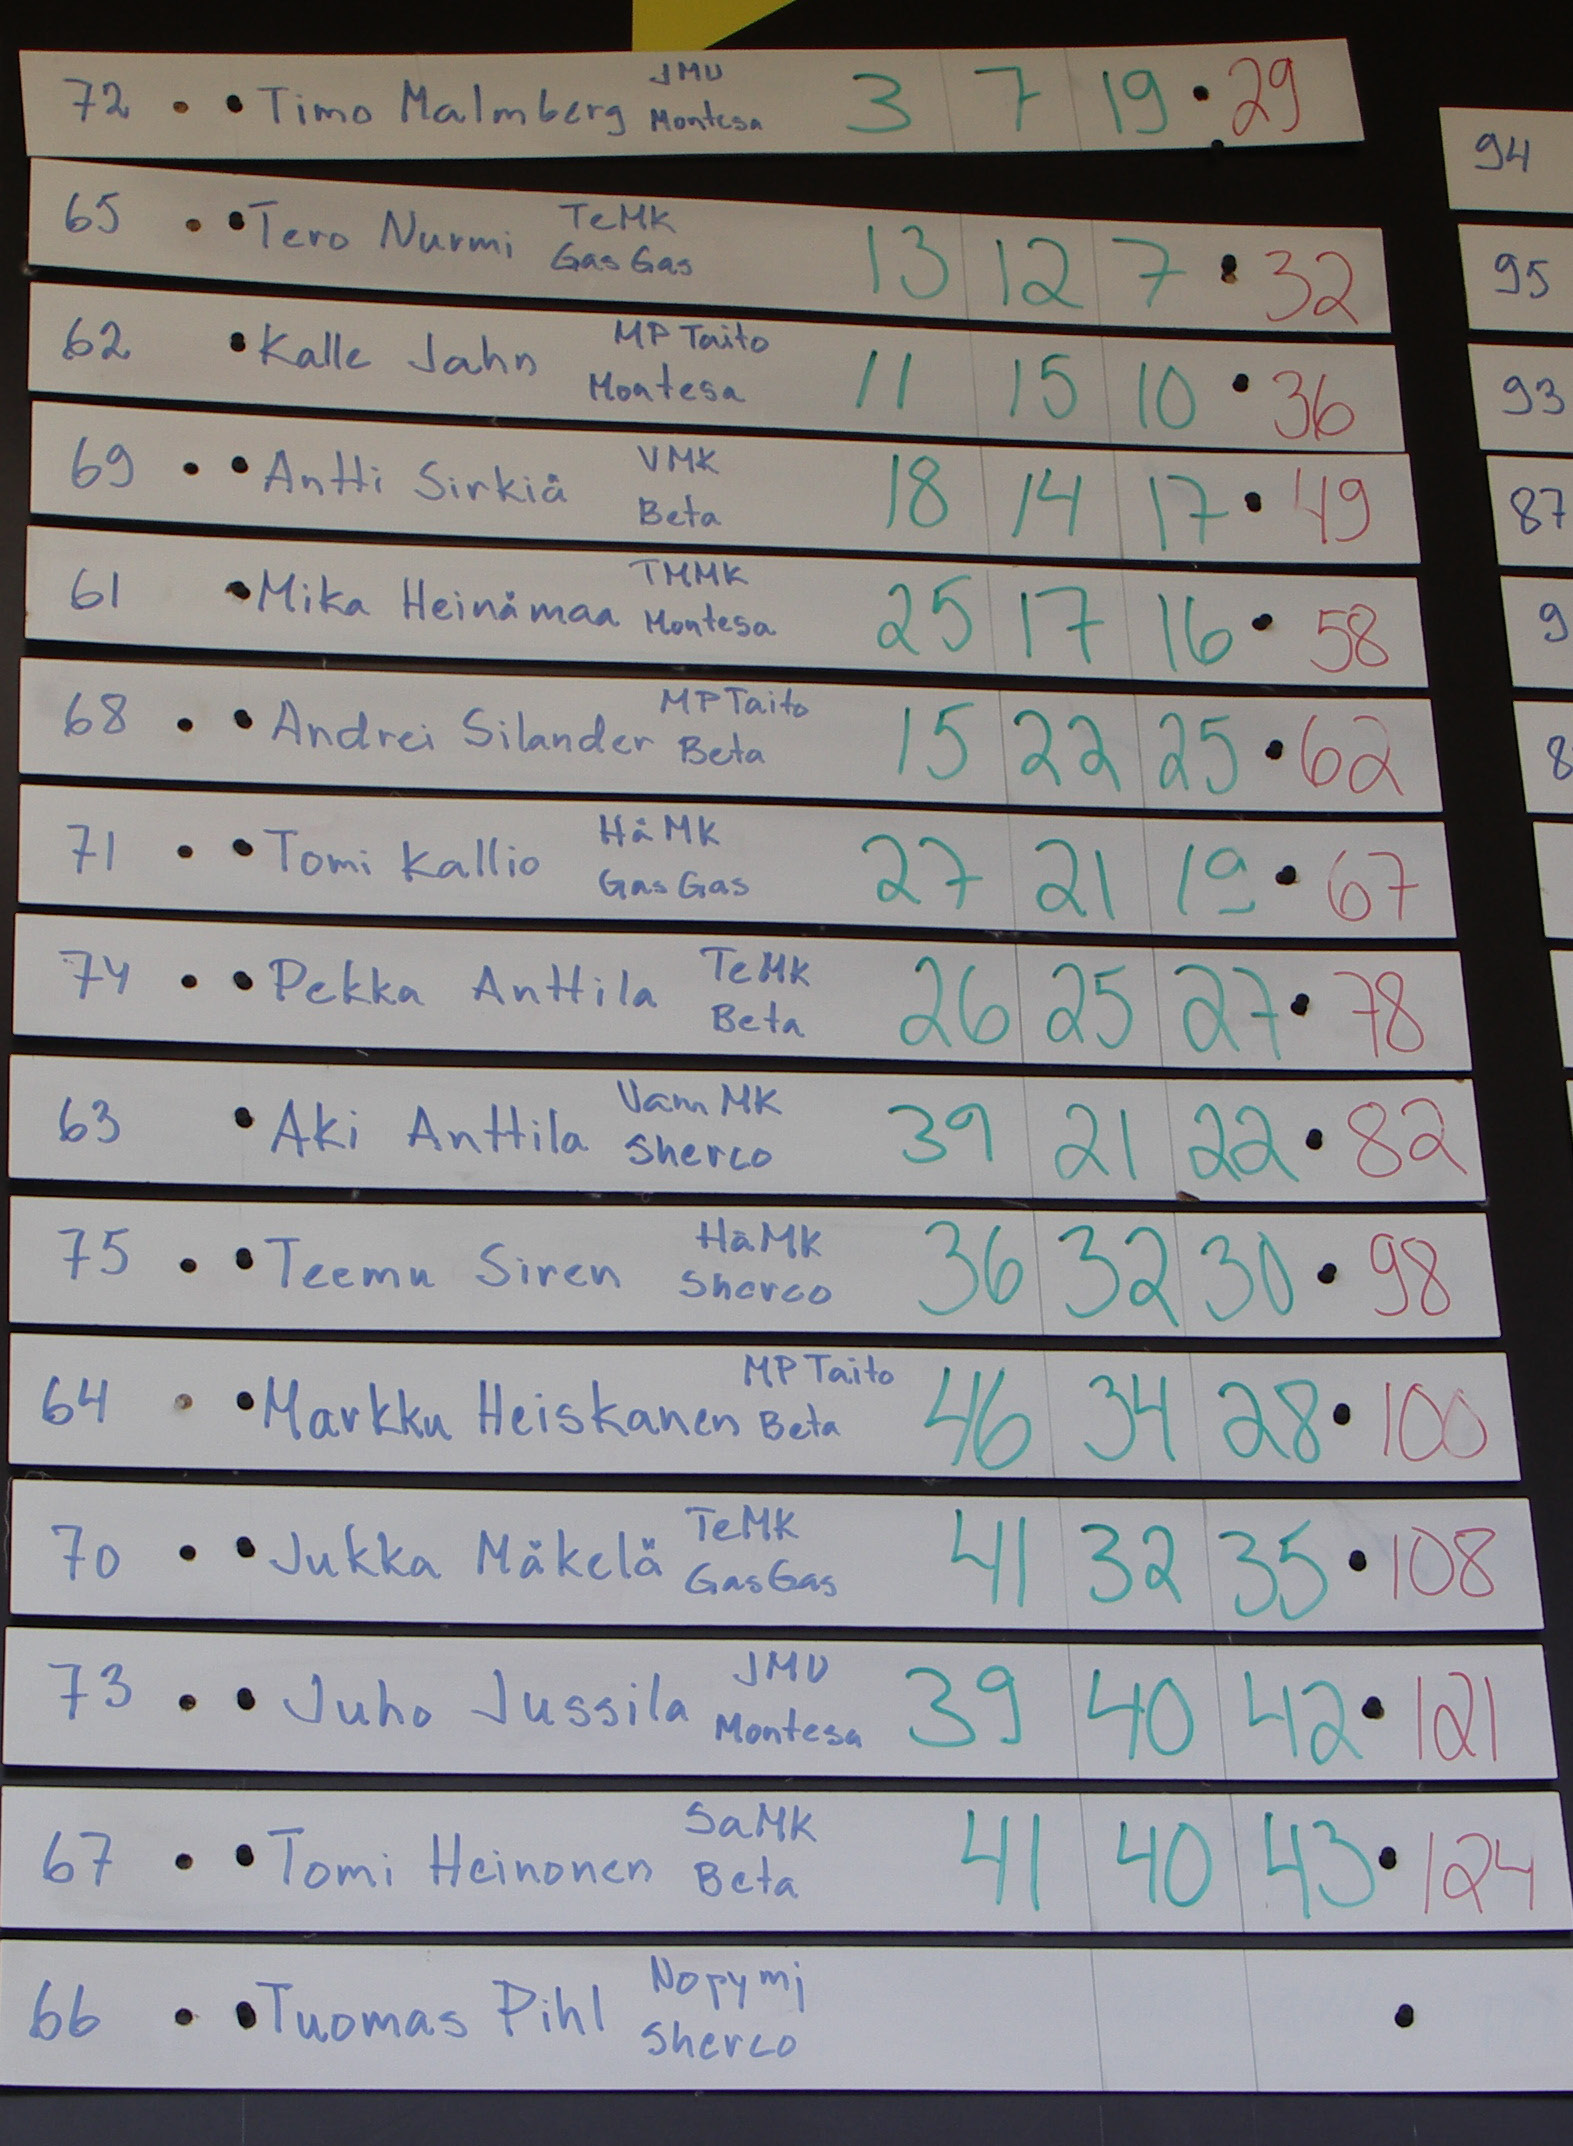 72 Timo Malmberg JMU Montesa 3 7 19 29
65 Tero Nurmi TeMK GasGas 13 12 7 32
62 Kalle Jahn MP Taito Montesa 11 15 10 36
69 Antti Sirkiä VMK Beta 18 14 17 49
61 Mika Heinämaa TMMK Montesa 25 17 16 58
68 Andrei Silander MP Taito Beta 15 22 25 62
71 Tomi Kallio HäMK GasGas 27 21 19 67
74 Pekka Anttila TeMK Beta 26 25 27 78
63 Aki Anttila VamMK Sherco 39 21 22 82
75 Teemu Siren HäMK Sherco 36 32 30 98
64 Markku Heiskanen MP Taito Beta 46 34 28 100
70 Jukka Mäkelä TeMK GasGas 41 32 35 108
73 Juho Jussila JMU Montesa 39 40 42 121
67 Tomi Heinonen SaMK Beta 41 40 43 124
66 Tuomas Pihl Nopymj Sherco
94
95
93
87
9
8